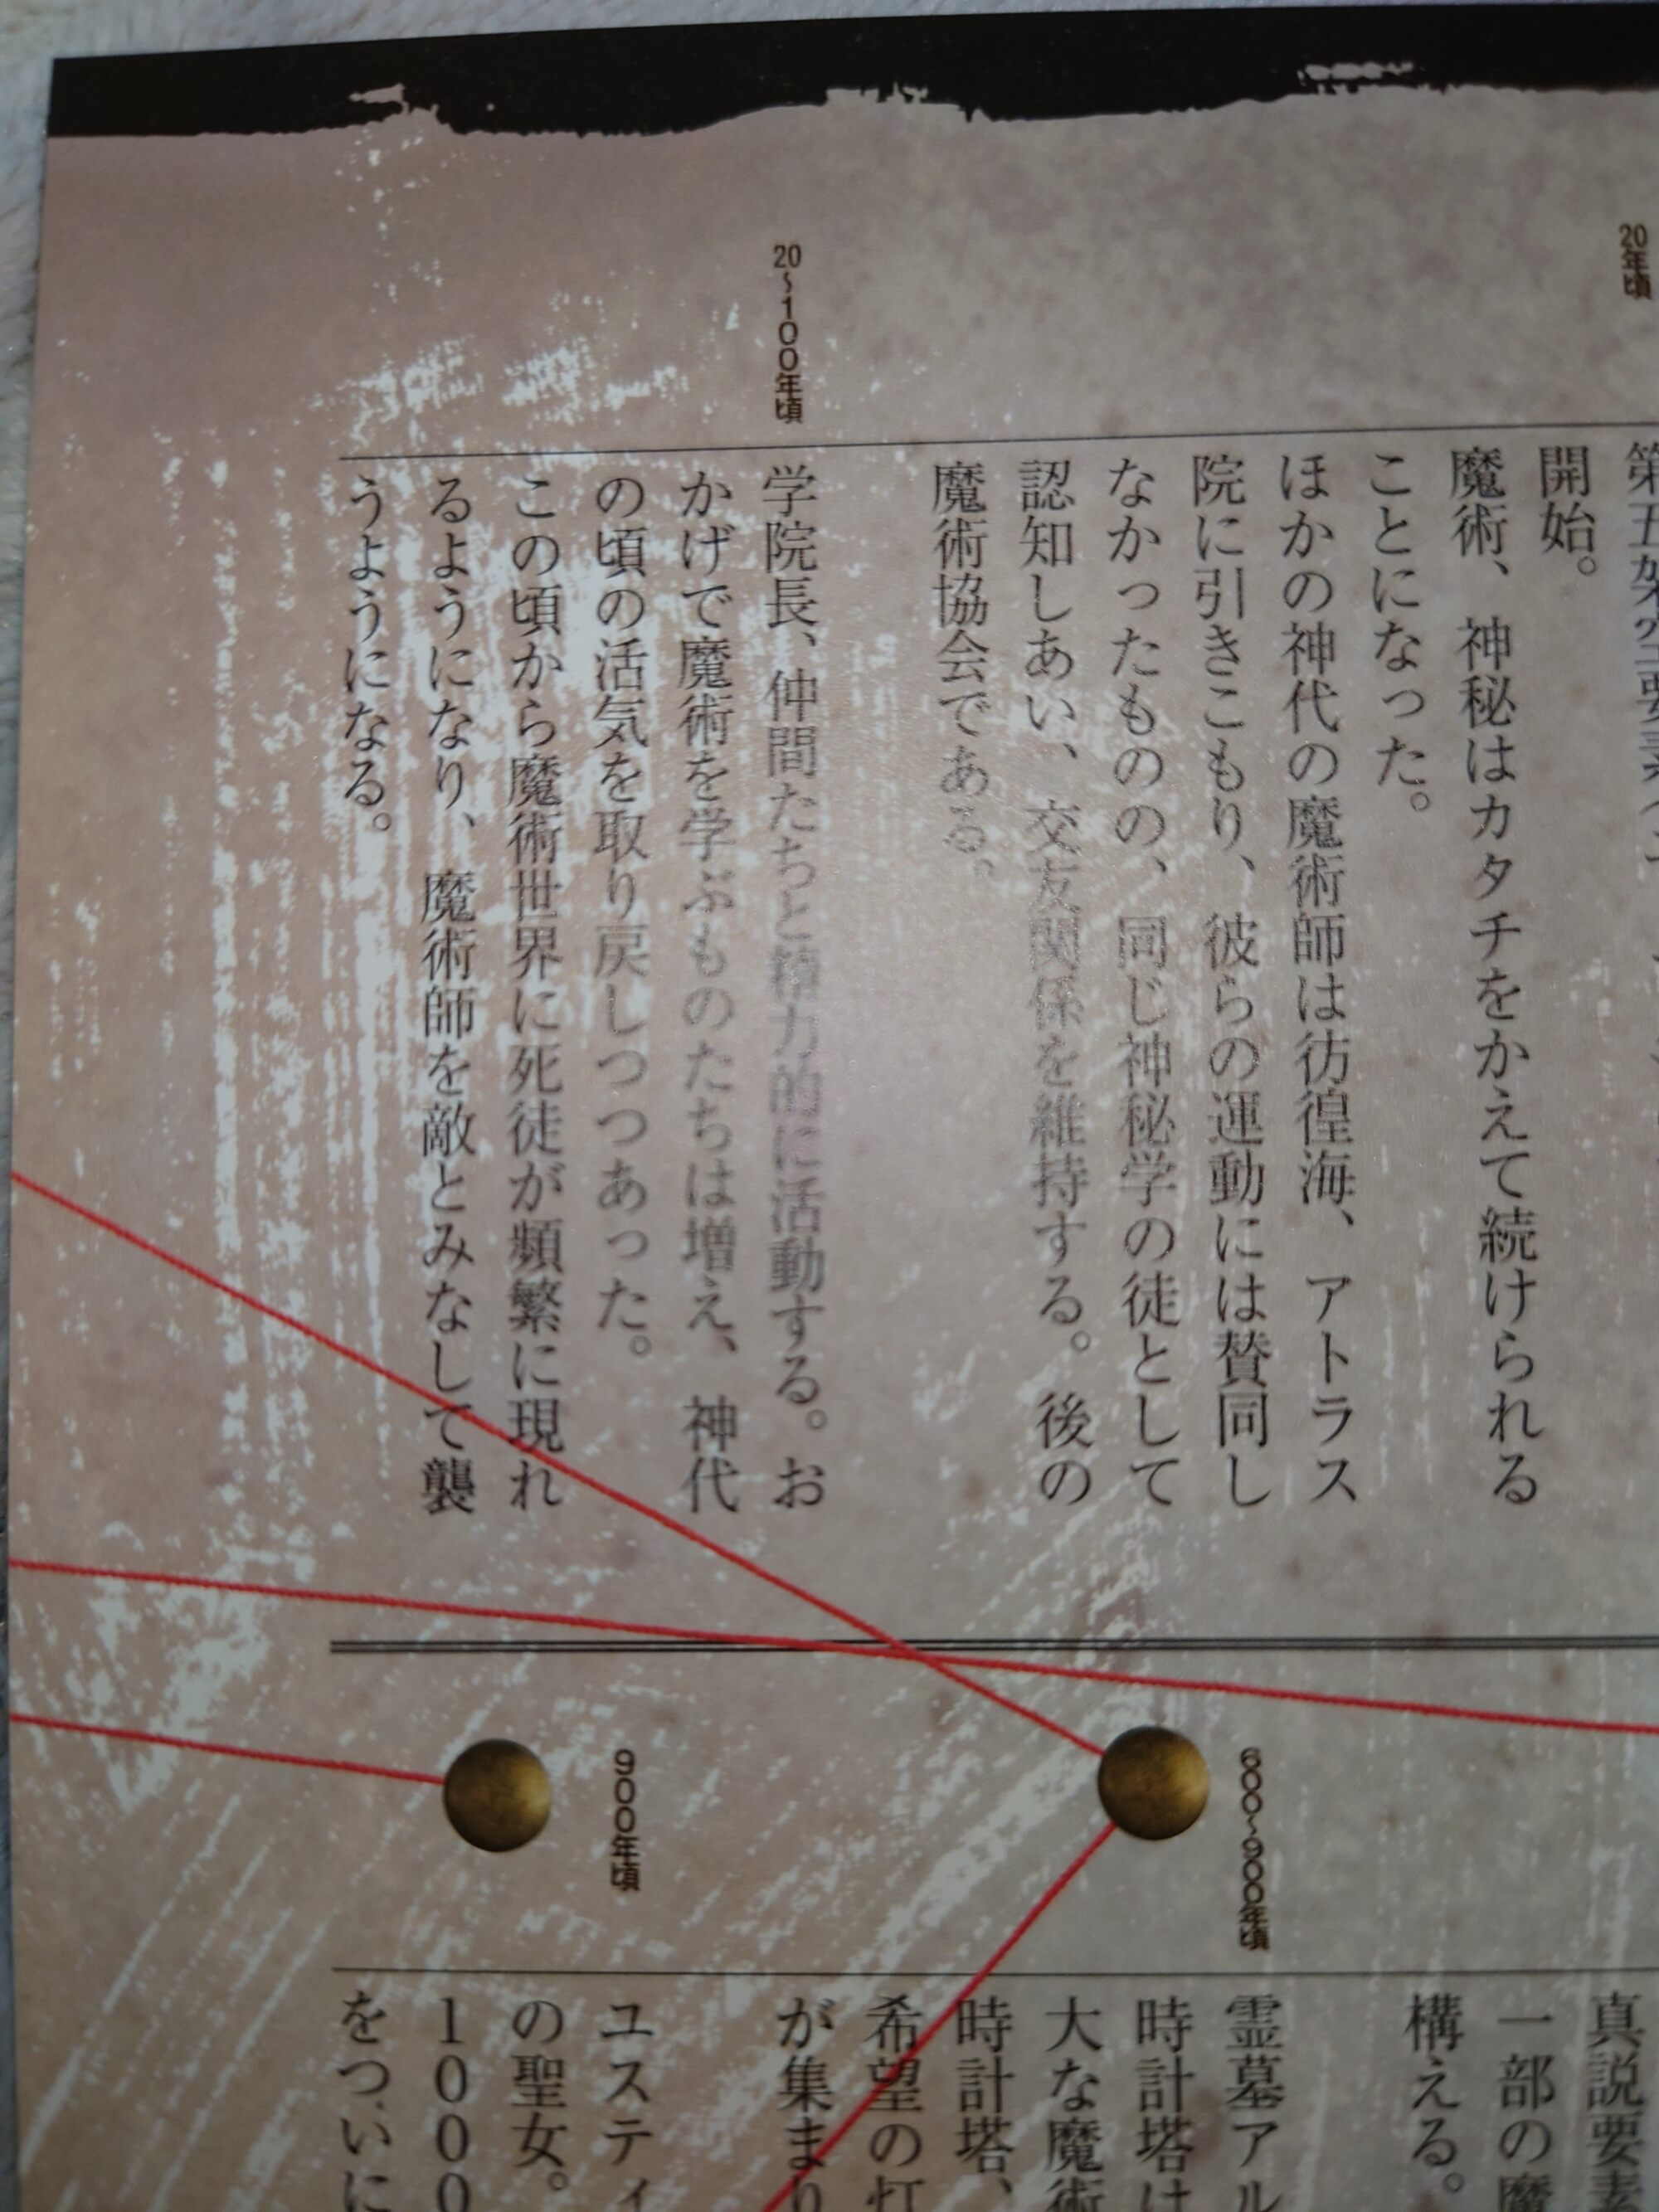 20年頃
開始。
魔術、神秘はカタチをかえて続けられる
ことになった。
ほかの神代の魔術師は彷徨海、アトラス
院に引きこもり、彼らの運動には賛同し
なかったものの、同じ神秘学の徒として
認知しあい、交友関係を維持する。後の
魔術協会である。
20～100年頃
学院長、仲間たちと精力的に活動する。お
かげで魔術を学ぶものたちは増え、神代
の頃の活気を取り戻しつつあった。
この頃から魔術世界に死徒が頻繁に現れ
るようになり、魔術師を敵とみなして襲
うようになる。
真説要素
一部の魔
構える。
600～900年頃
霊墓アル
時計塔は
大な魔術
時計塔、
希望の灯
が集まり
900年頃
ユスティ
の聖女。
1000
をついに